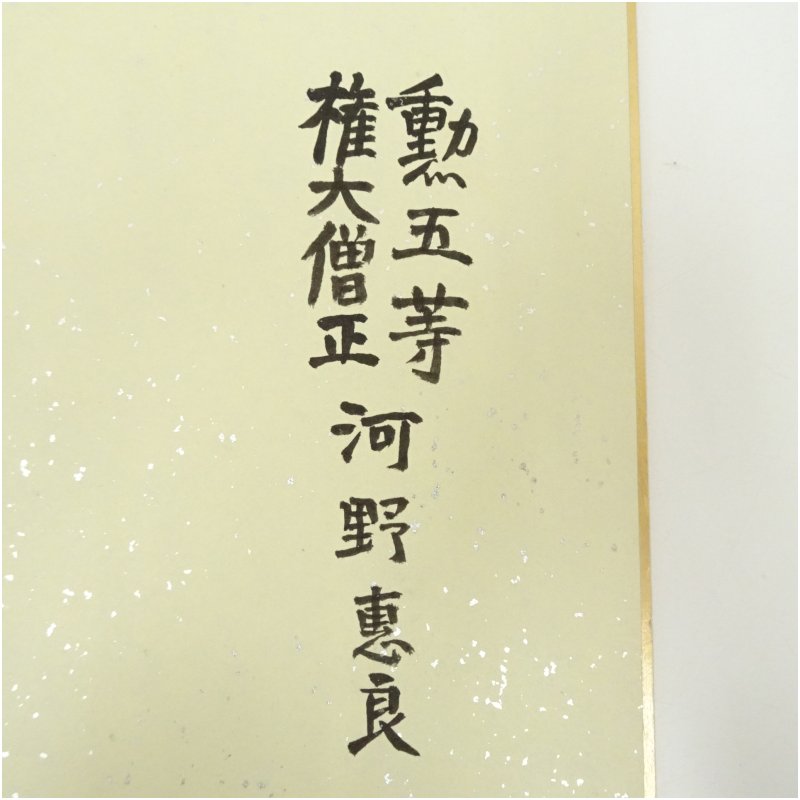 勲五等
権大僧正
河野恵良